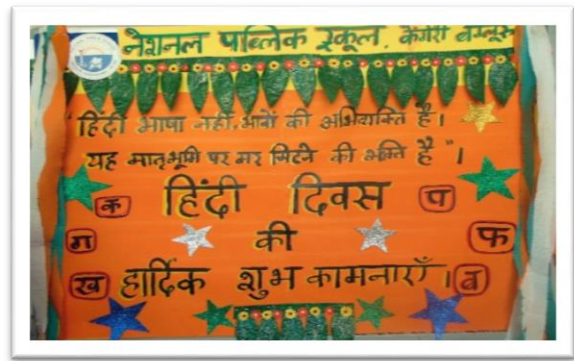 नेशनल पब्लिक स्कूल, केंगेरी बेंगलूरु
"हिंदी भाषा नहीं, भावों की अभिव्यक्ति है।
यह मातृभूमि पर मर मिटने की भक्ति है"।
क हिंदी दिवस प
ग की फ
ख हार्दिक शुभ कामनाएँ। ब